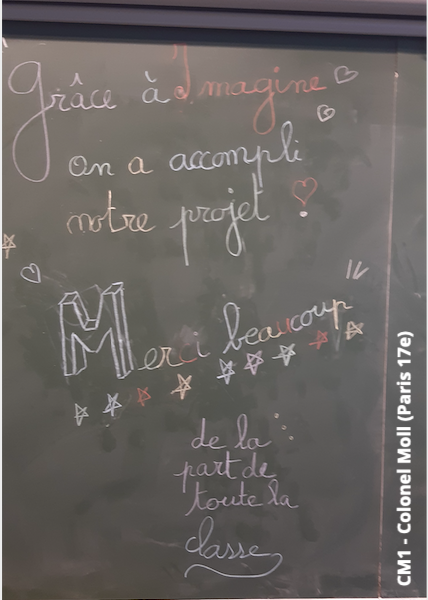 Grâce à Imagine
on a accompli
notre projet !
Merci beaucoup
de la
part de
toute la
classe
CM1 - Colonel Moll (Paris 17e)